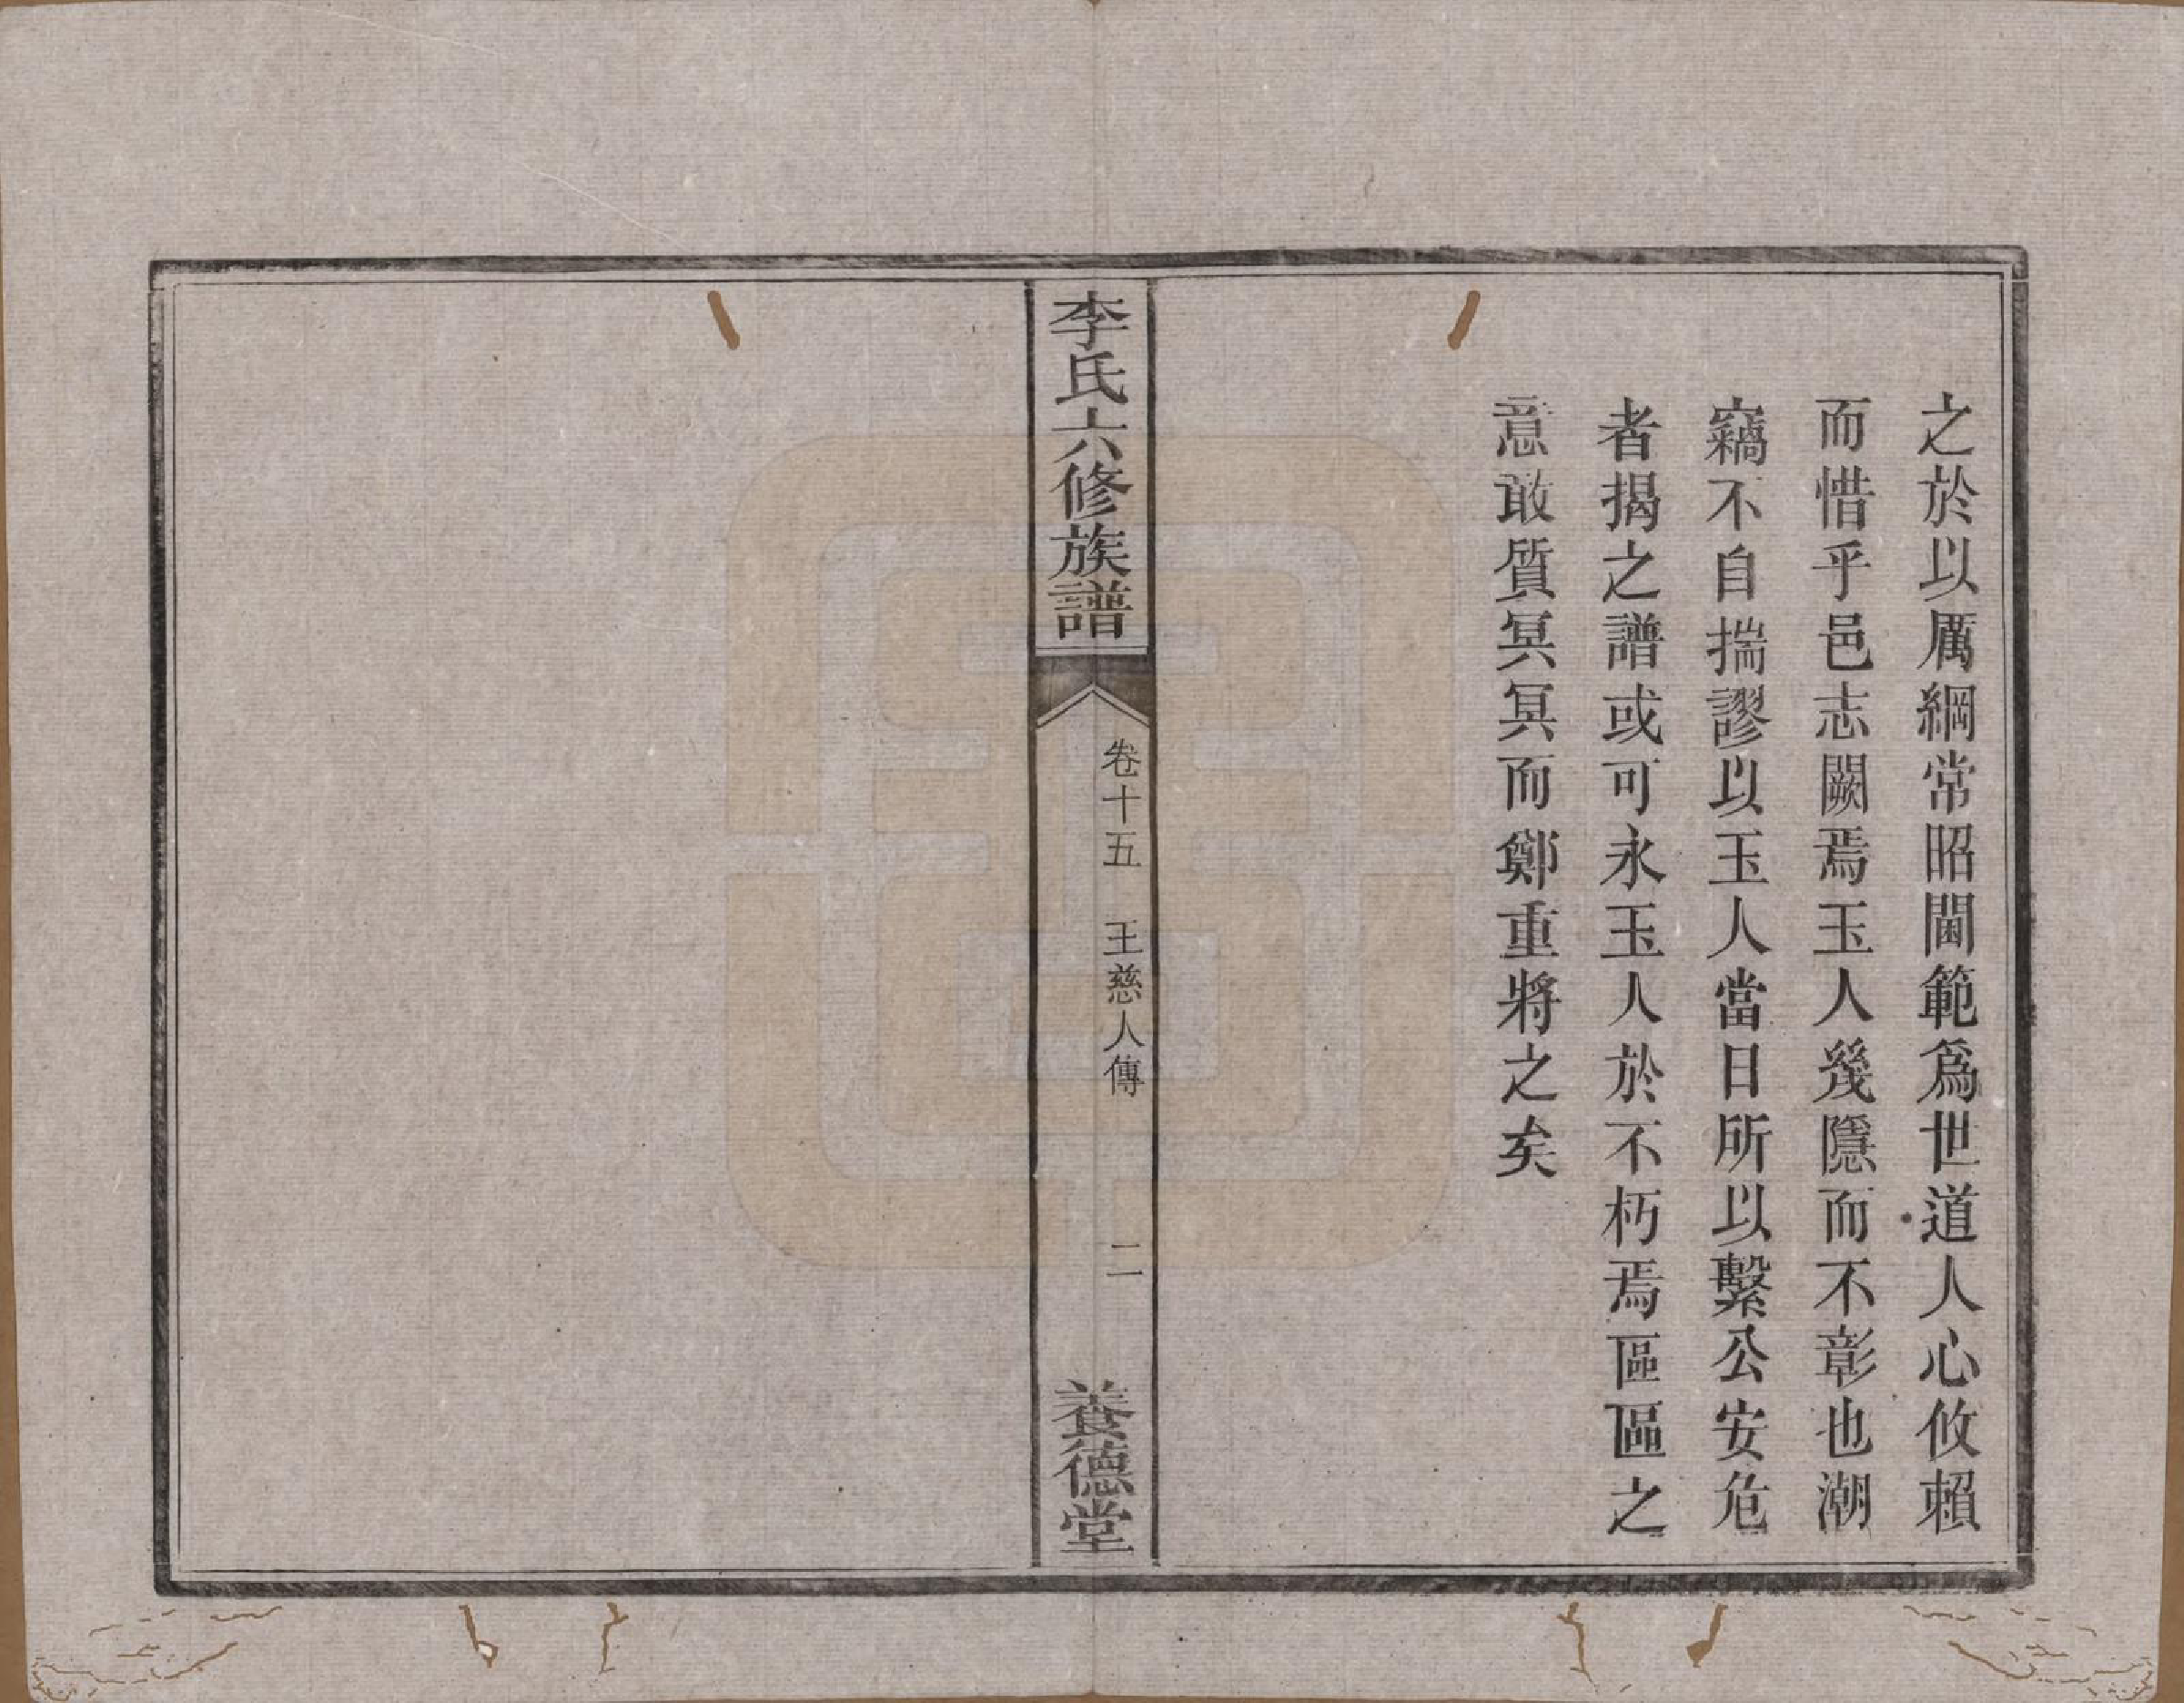 之於以厲綱常昭閫範爲世道人心攸賴
而惜乎邑志闕焉玉人幾隱而不彰也潮
竊不自揣謬以玉人當日所以繫公安危
者揭之譜或可永玉人於不朽焉區區之
意敢質冥冥而鄭重將之矣
李氏六修族譜
卷十五 王慈人傳 二
養德堂